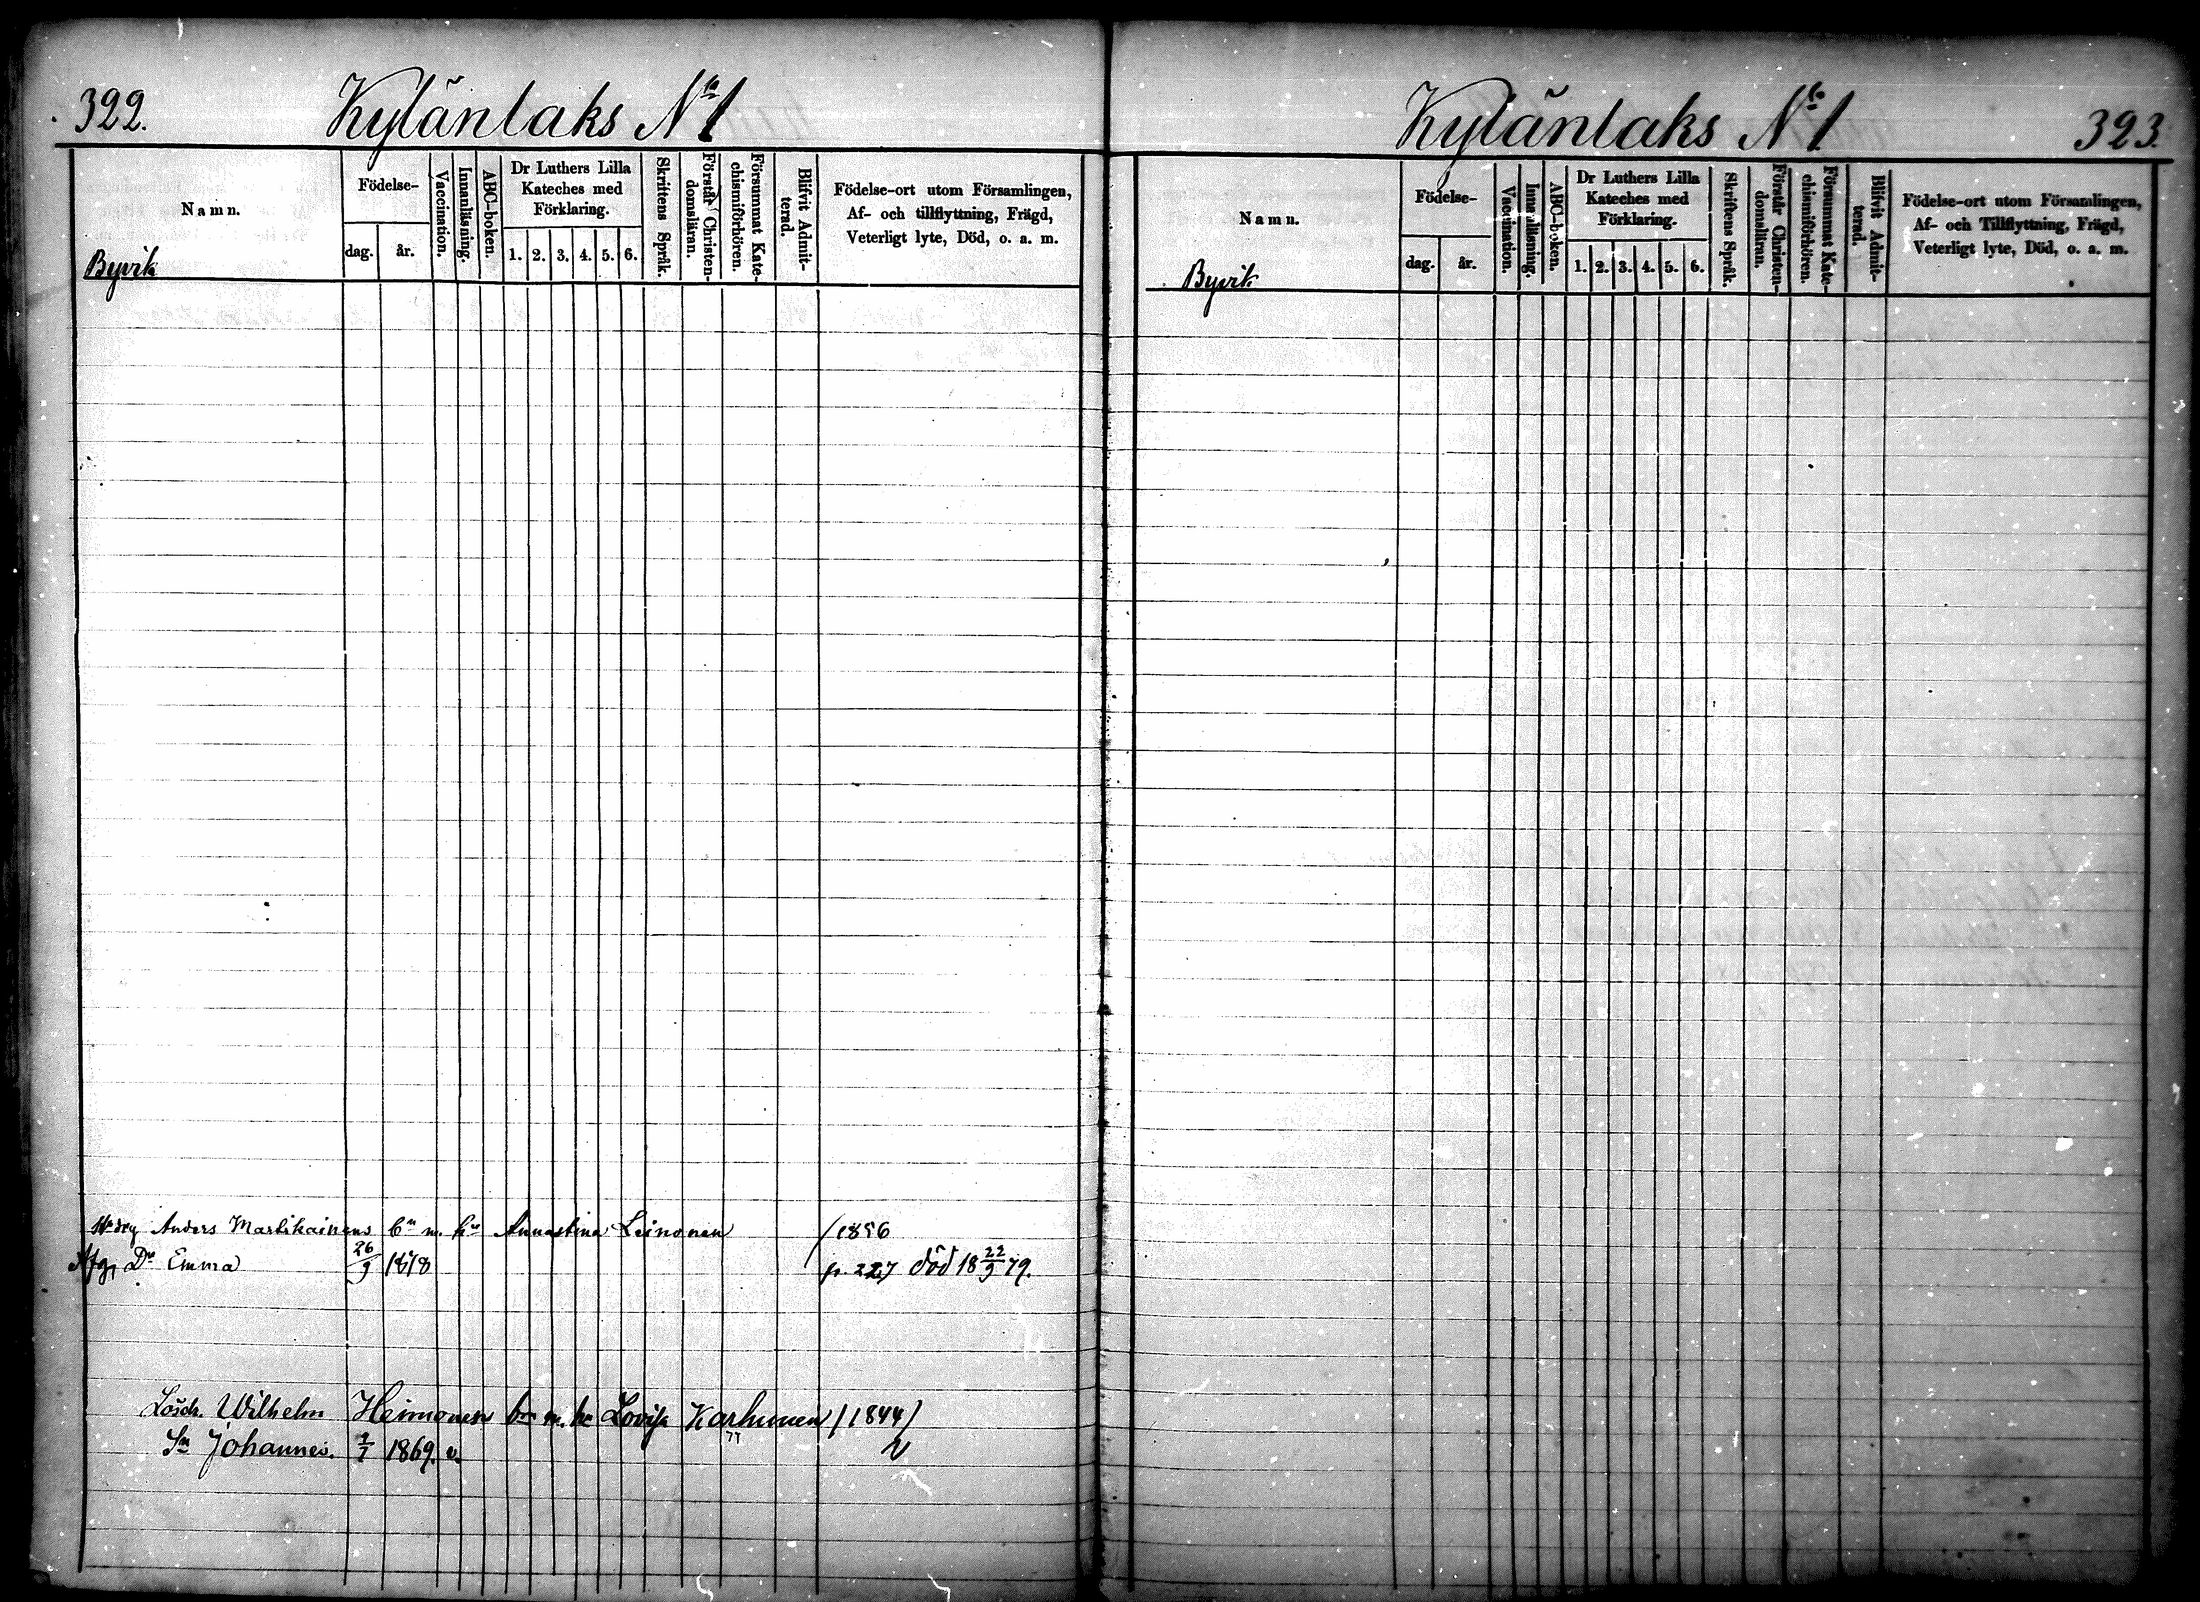 322. Kylänlaks No 1
Namn.
Födelse-
dag. år.
Vaccination.
Innanläsning.
ABC-boken.
Dr Luthers Lilla Kateches med Förklaring.
1. 2. 3. 4. 5. 6.
Skriftens Språk.
Förstår Christendomsläran.
Försummat Katechismiförhören.
Blifvit Admitterad.
Födelse-ort utom Församlingen,
Af- och tillflyttning, Frägd,
Veterligt lyte, Död, o. a. m.
Byvik
Anders Martikainens bn m. hu Annastina Leinonen /1856
Dr Emma 26/9 1878 p. 227 död 18 22/9 79.
Lösdr. Wilhelm Heimonen bn m. hu Lovisa Karhunen /1844/
Sn Johannes. 1869. v.
Kylänlaks No 1 323.
Namn.
Födelse-
dag. år.
Vaccination.
Innanläsning.
ABC-boken.
Dr Luthers Lilla Kateches med Förklaring.
1. 2. 3. 4. 5. 6.
Skriftens Språk.
Förstår Christendomsläran.
Försummat Katechismiförhören.
Blifvit Admitterad.
Födelse-ort utom Församlingen,
Af- och Tillflyttning, Frägd,
Veterligt lyte, Död, o. a. m.
Byvik